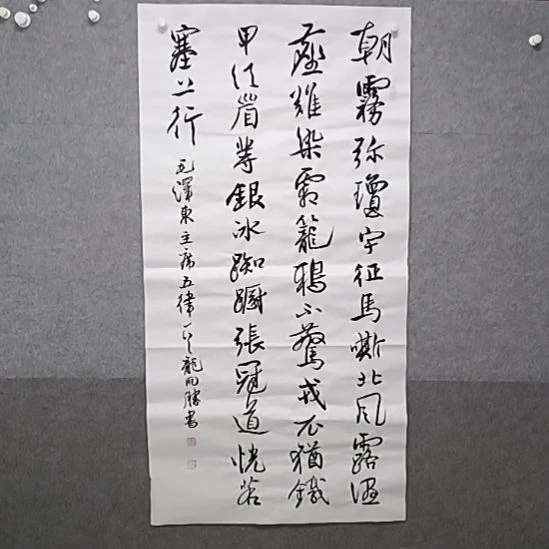 朝霧弥瓊宇征馬嘶北风露湿
塵難染霜籠鴉不驚戎衣猶鐵
甲须眉等銀冰踟躕張冠道恍若
塞上行
毛澤東主席五律一首龍向勝書